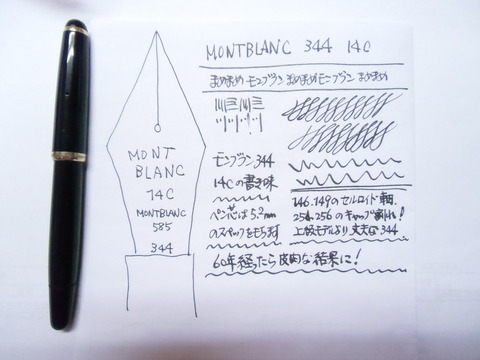 MONTBLANC 344 14C
まめまめ モンブラン まめまめモンブラン まめまめ
MONT
BLANC
14C
MONTBLANC
585
344
モンブラン344
14Cの書き味
ペン芯は5.2mm
のスペックをもちます
146.149のセルロイド軸
254.256のキャップ割れ!
上級モデルより丈夫な344
60年経ったら皮肉な結果に!